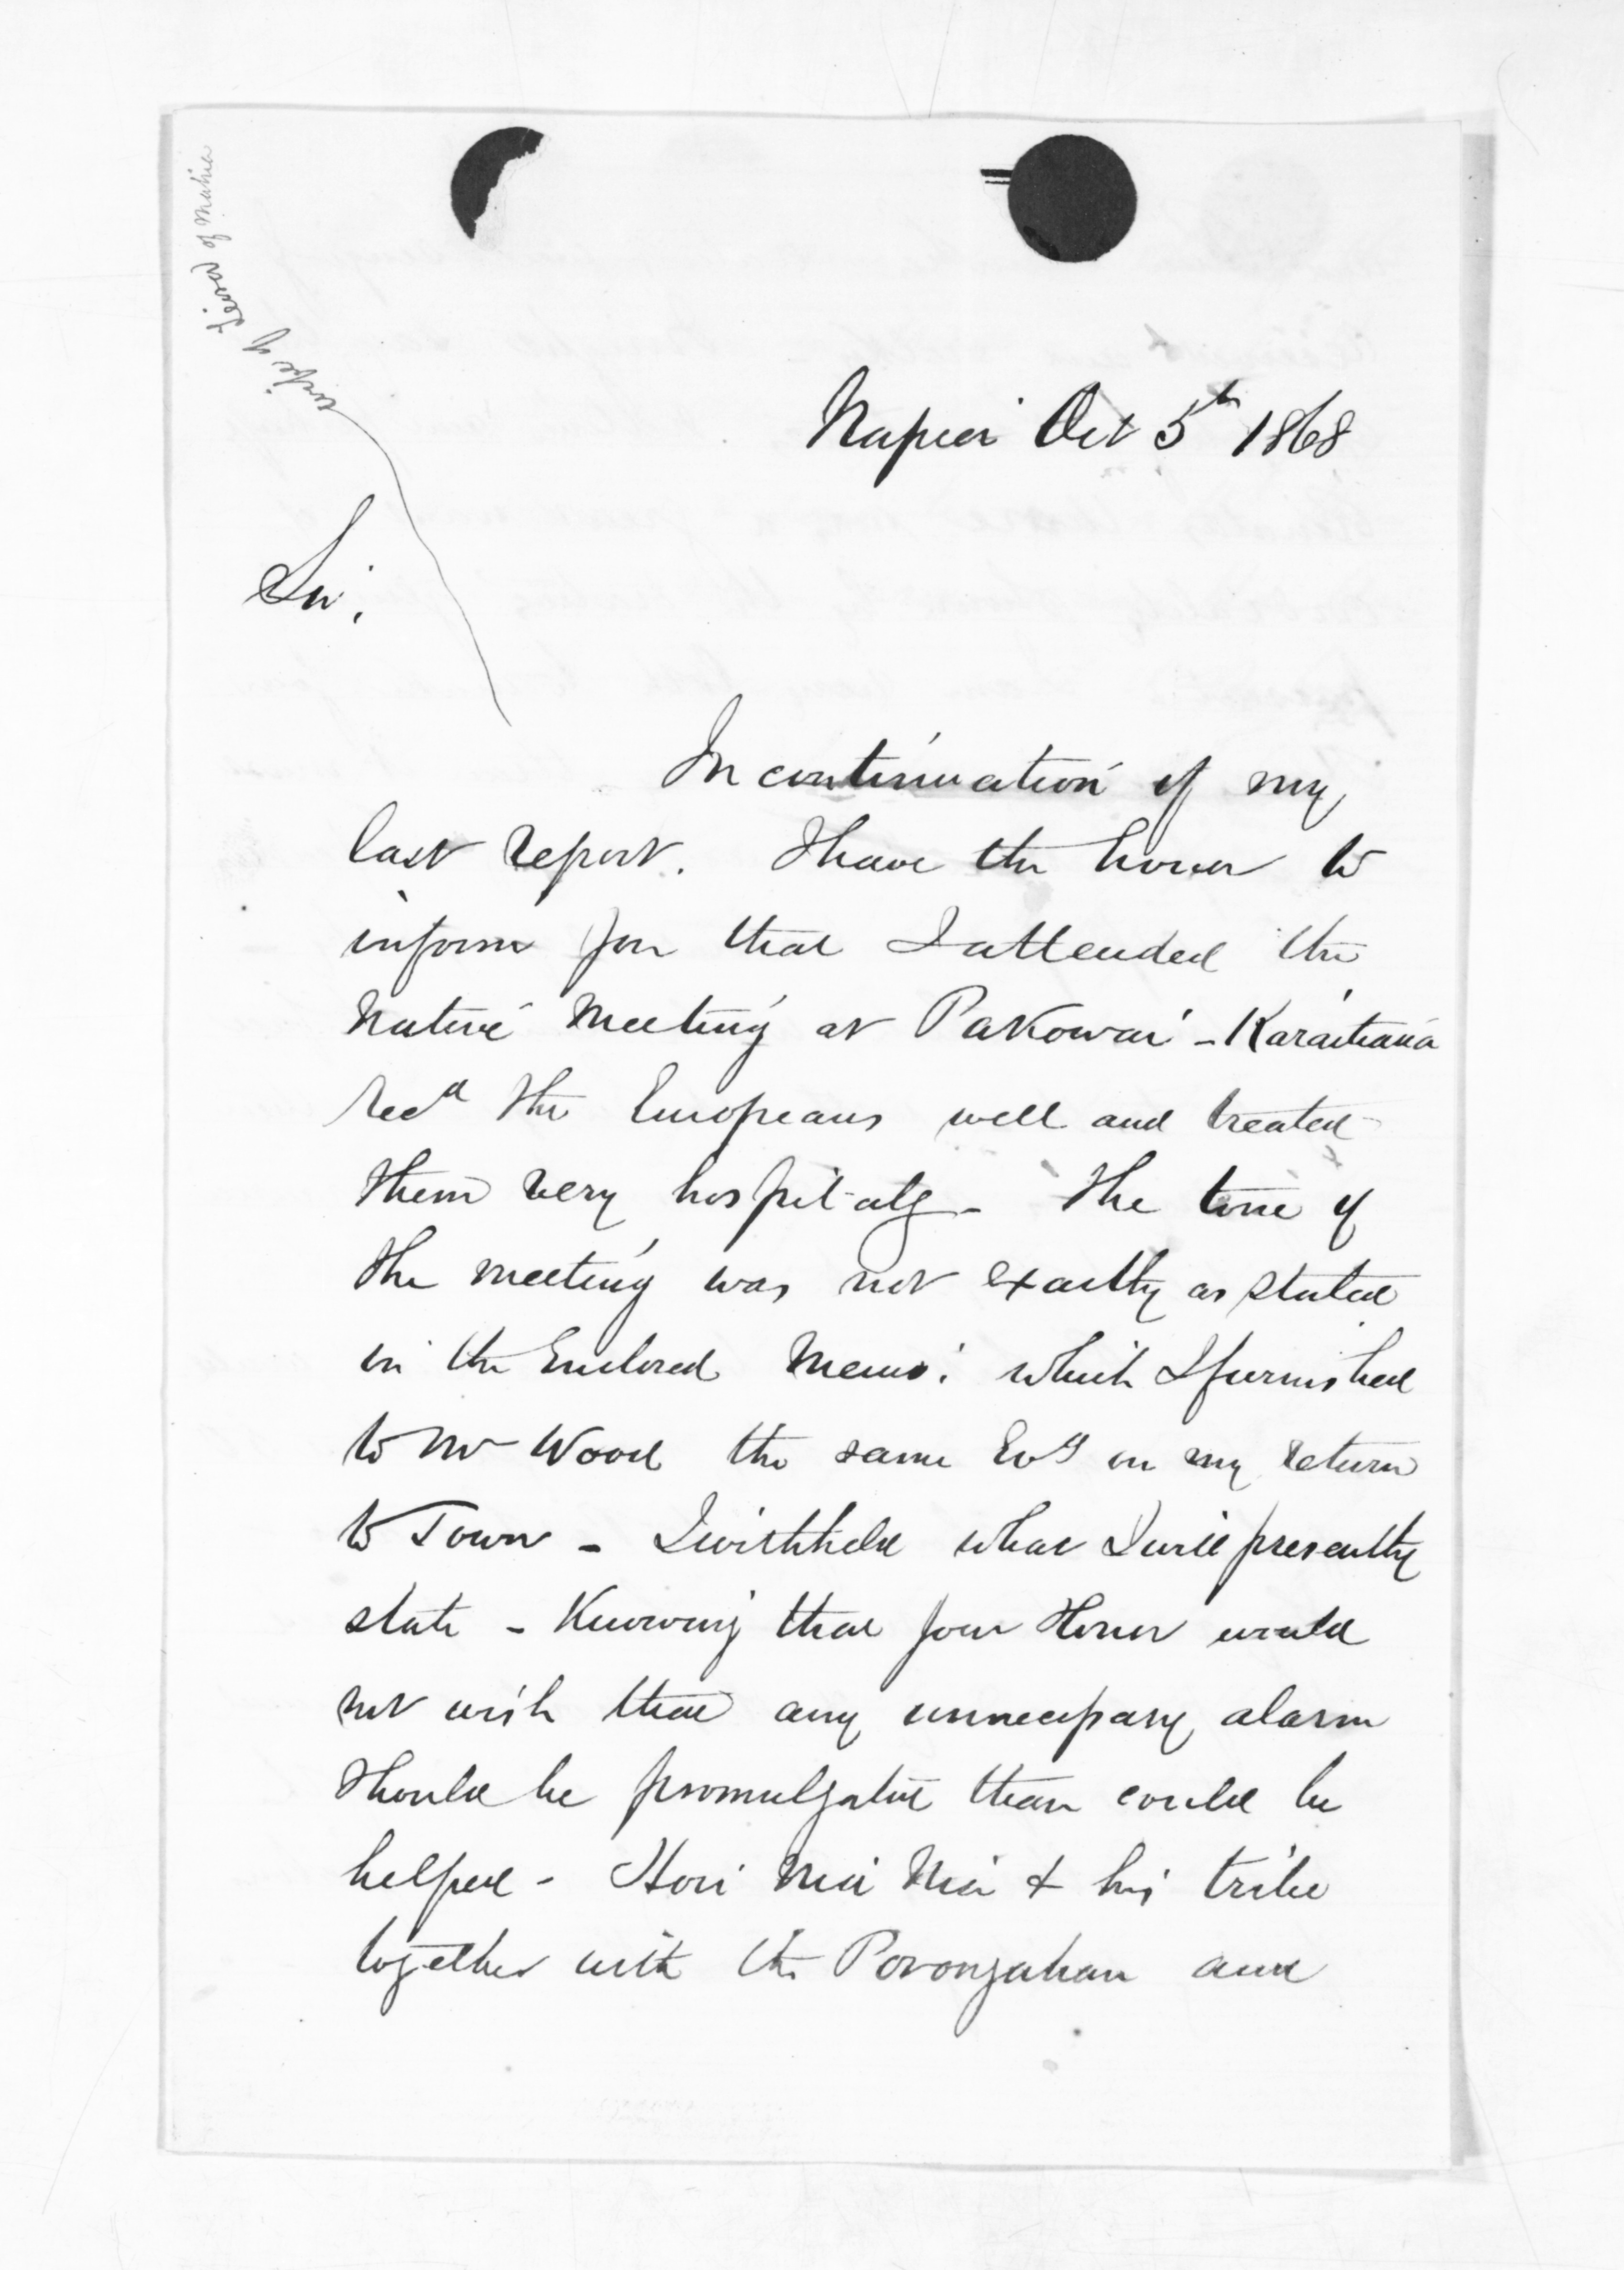 wife of Tiwai of Mahia
Napier Oct 5th 1868
Sir,
In continuation of my
last report. I have the honor to
inform you that I attended the
Native Meeting at Pakowai - Karaitiana
Recd the Europeans well and treated
them very hospitaly - The tone of
the meeting was not exactly as stated
in the Enclosed Memo: which I furnished
to Mr Wood the same Evg on my return
to Town - I withheld what I will presently
state - Knowing that your Honor would
not wish that any unnecessary alarm
should be promulgated than could be
helped - Hori Nia Nia & his tribe
together with the Porongahau and